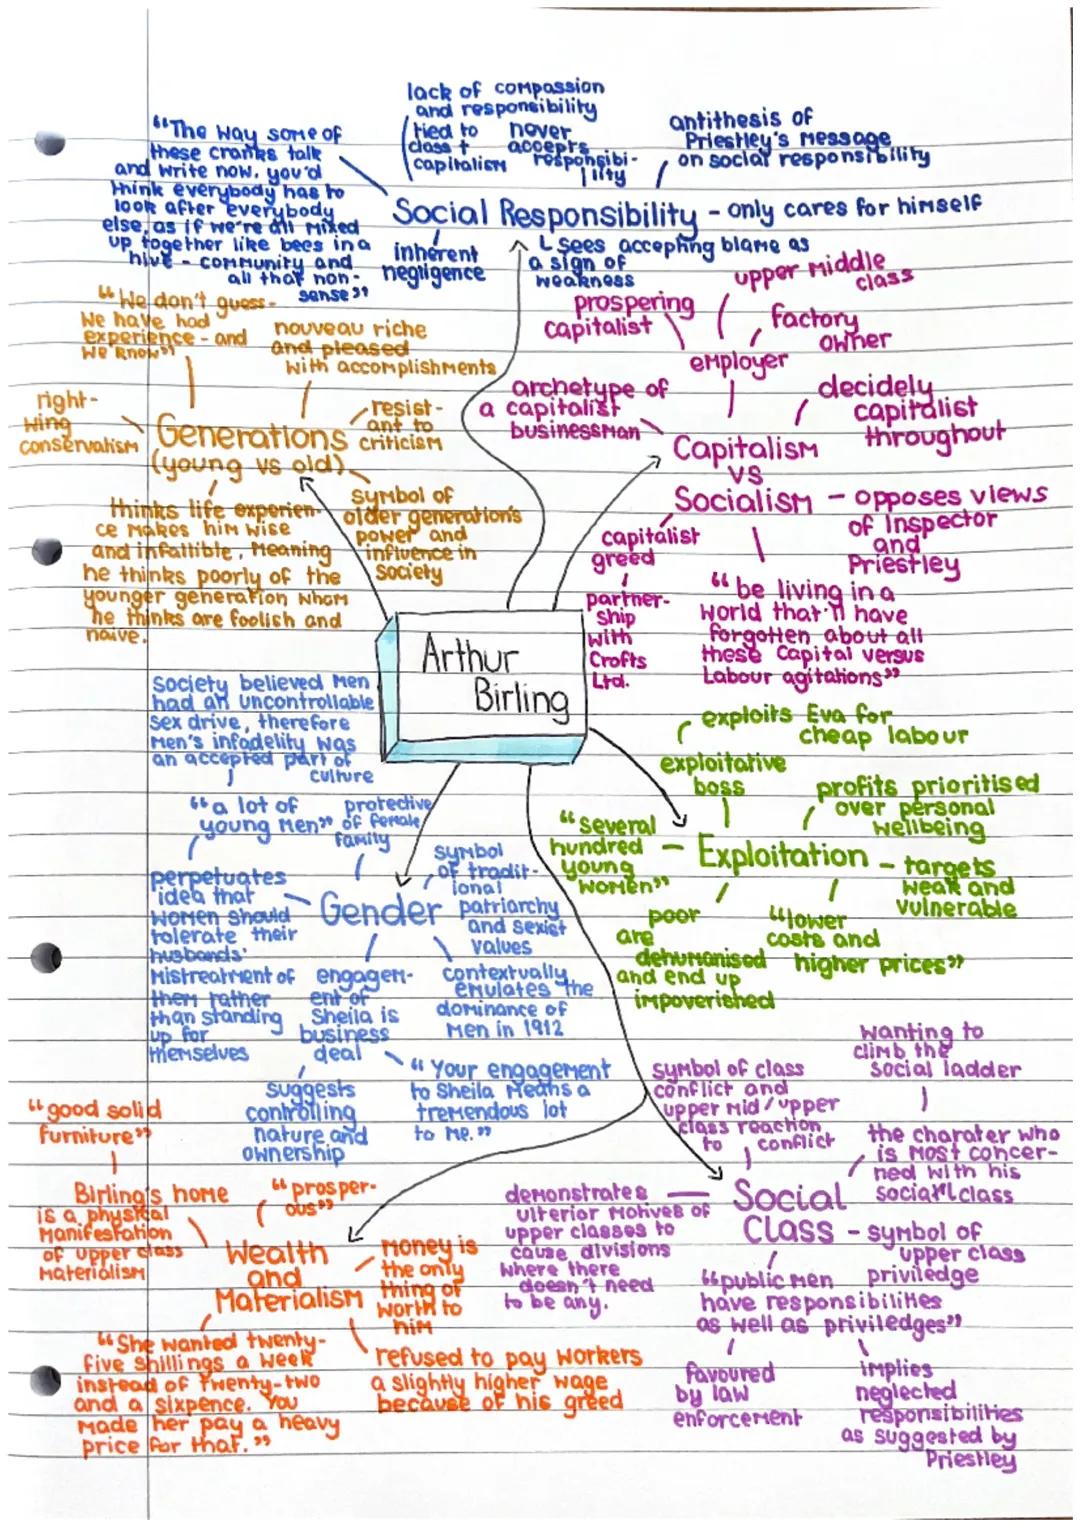 lack of compassion
and responsibility
tied to
class +
capitalism
never
accepts
responsibi-
lity
antithesis of
Priestley's message
on social responsibility
"The way some of
these cranks talk
and write now, you'd
think everybody has to
look after everybody
else, as if we're all mixed
up together like bees in a
hive - community and
all that non-
sense"
Social Responsibility - only cares for himself
inherent
negligence
sees accepting blame as
a sign of
weakness
"We don't guess-
We have had
experience - and
we know"
nouveau riche
and pleased
with accomplishments
right-
wing
conservatism
Generations
(young vs old)
resist-
ant to
criticism
thinks life experien-
ce makes him wise
and infallible, meaning
he thinks poorly of the
younger generation whom
he thinks are foolish and
naive.
symbol of
older generation's
power and
influence in
society
prospering
capitalist
upper middle
class
factory
owner
employer
archetype of
a capitalist
businessman
decidely
capitalist
throughout
Capitalism
vs
Socialism - opposes views
of Inspector
and
Priestley
capitalist
greed
partner-
ship
with
Crofts
Ltd.
"be living in a
world that'll have
forgotten about all
these Capital versus
Labour agitations"
Arthur
Birling
society believed men
had an uncontrollable
sex drive, therefore
men's infadelity was
an accepted part of
culture
"a lot of
young men"
protective
of female
family
perpetuates
idea that
women should
tolerate their
husbands'
mistreatment of
them rather
than standing
up for
themselves
Gender
symbol
of tradit-
ional
patriarchy
and sexist
values
engagem-
ent of
Sheila is
business
deal
contextually
emulates the
dominance of
men in 1912
suggests
controlling
nature and
ownership
"Your engagement
to Sheila means a
tremendous lot
to me."
exploits Eva for
cheap labour
exploitative
boss
profits prioritised
over personal
wellbeing
"several
hundred
young
women"
Exploitation - targets
weak and
vulnerable
poor
are
dehumanised
and end up
impoverished
"lower
costs and
higher prices"
"good solid
furniture"
Birling's home
is a physical
manifestation
of upper class
materialism
"prosper-
ous"
Wealth
and
Materialism
money is
the only
thing of
worth to
him
"She wanted twenty-
five shillings a week
instead of twenty-two
and a sixpence. You
made her pay a heavy
price for that."
refused to pay workers
a slightly higher wage
because of his greed
symbol of class
conflict and
upper mid/upper
class reaction
to conflict
wanting to
climb the
social ladder
the charater who
is most concer-
ned with his
social class
demonstrates
ulterior motives of
upper classes to
cause divisions
where there
doesn't need
to be any.
Social
Class - symbol of
upper class
priviledge
"public men
have responsibilities
as well as priviledges"
favoured
by law
enforcement
implies
neglected
responsibilities
as suggested by
Priestley